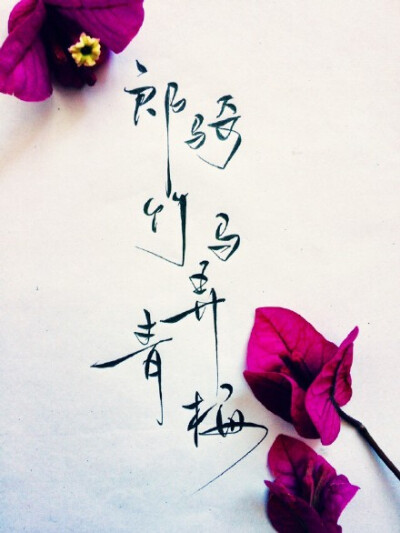 郎骑竹马弄青梅